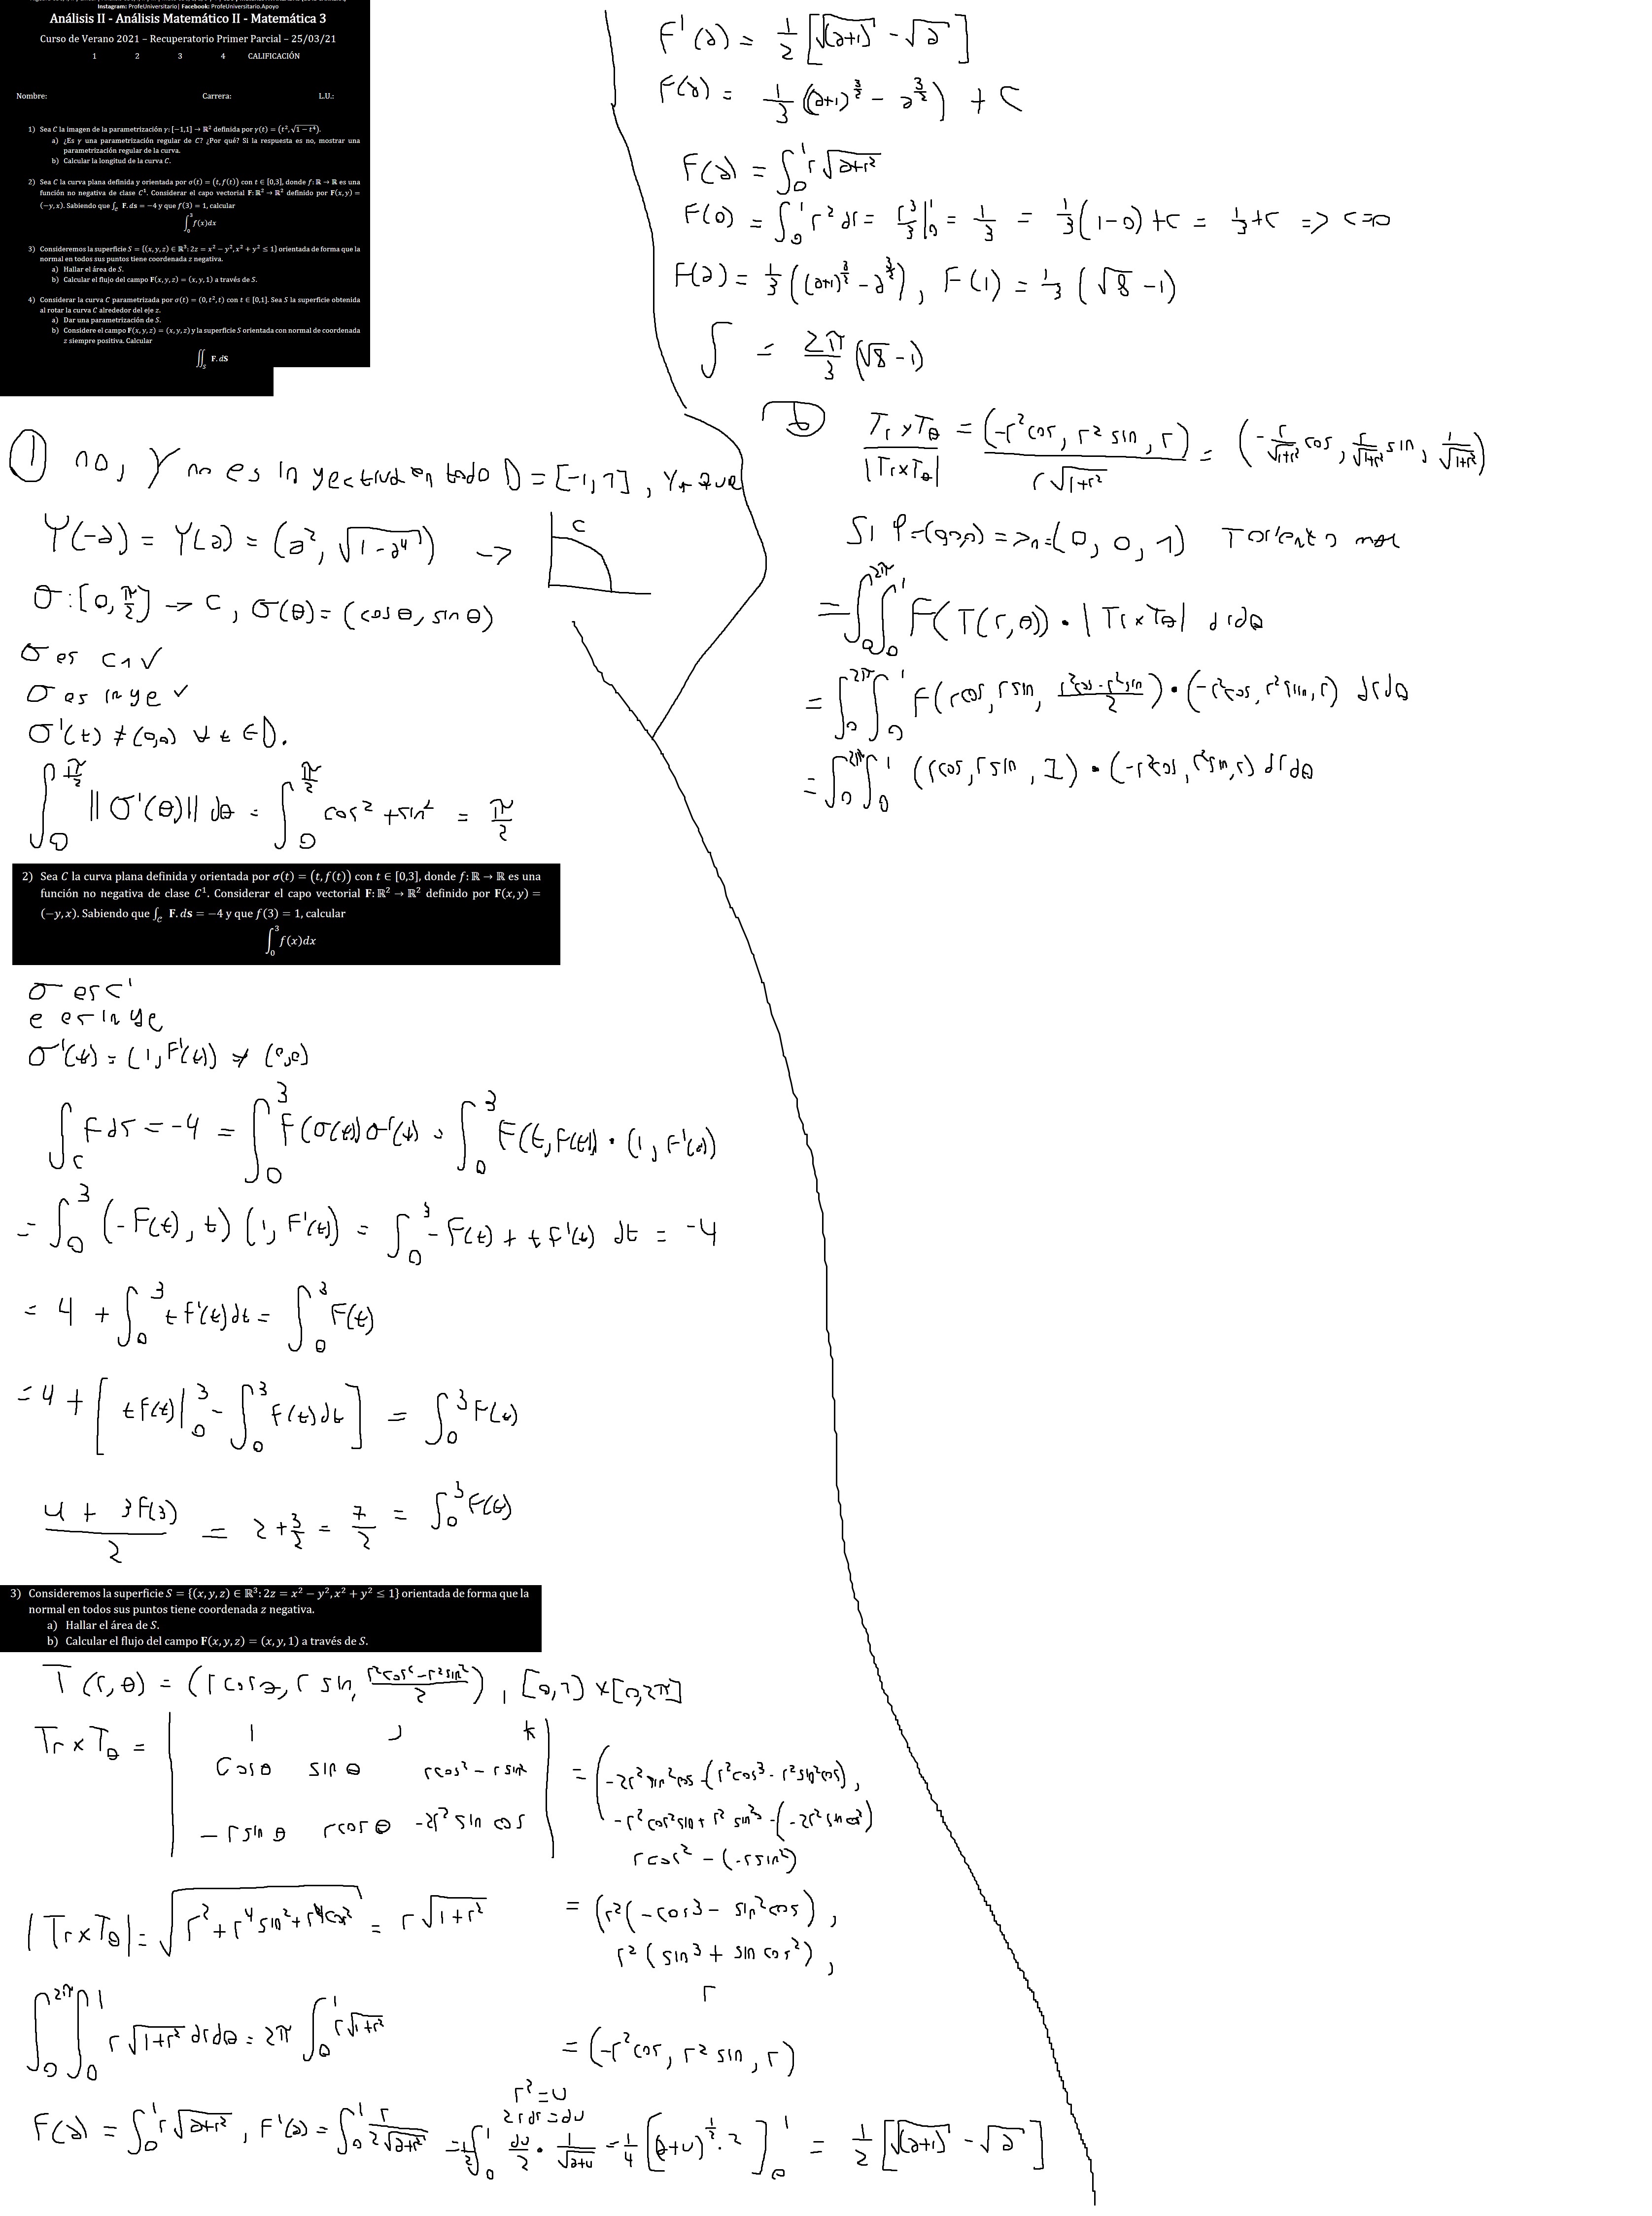 Instagram: ProfeUniversitario| Facebook: ProfeUniversitario.Apoyo
Análisis II - Análisis Matemático II - Matemática 3
Curso de Verano 2021 – Recuperatorio Primer Parcial – 25/03/21
1 2 3 4 CALIFICACIÓN
Nombre: Carrera: L.U.:
1) Sea C la imagen de la parametrización γ: [−1,1] → ℝ² definida por γ(t) = (t², √(1 − t⁴)).
a) ¿Es γ una parametrización regular de C? ¿Por qué? Si la respuesta es no, mostrar una
parametrización regular de la curva.
b) Calcular la longitud de la curva C.
2) Sea C la curva plana definida y orientada por σ(t) = (t, f(t)) con t ∈ [0,3], donde f: ℝ → ℝ es una
función no negativa de clase C¹. Considerar el capo vectorial F: ℝ² → ℝ² definido por F(x, y) =
(−y, x). Sabiendo que ∫_C F. ds = −4 y que f(3) = 1, calcular
∫₀³ f(x)dx
3) Consideremos la superficie S = {(x, y, z) ∈ ℝ³: 2z = x² − y², x² + y² ≤ 1} orientada de forma que la
normal en todos sus puntos tiene coordenada z negativa.
a) Hallar el área de S.
b) Calcular el flujo del campo F(x, y, z) = (x, y, 1) a través de S.
4) Considerar la curva C parametrizada por σ(t) = (0, t², t) con t ∈ [0,1]. Sea S la superficie obtenida
al rotar la curva C alrededor del eje z.
a) Dar una parametrización de S.
b) Considere el campo F(x, y, z) = (x, y, z) y la superficie S orientada con normal de coordenada
z siempre positiva. Calcular
∬_S F. dS
① no, γ no es inyectiva en todo D = [-1, 1], ya que
γ(-a) = γ(a) = (a², √(1-a⁴)) -> C
σ: [0, π/2] -> C, σ(θ) = (cos θ, sin θ)
σ es C1 ✓
σ es inye ✓
σ'(t) ≠ (0,0) ∀ t ∈ D.
∫₀^(π/2) ||σ'(θ)|| dθ = ∫₀^(π/2) cos² + sin² = π/2
2) Sea C la curva plana definida y orientada por σ(t) = (t, f(t)) con t ∈ [0,3], donde f: ℝ → ℝ es una
función no negativa de clase C¹. Considerar el capo vectorial F: ℝ² → ℝ² definido por F(x, y) =
(−y, x). Sabiendo que ∫_C F. ds = −4 y que f(3) = 1, calcular
∫₀³ f(x)dx
σ es C¹
e es inye
σ'(t) = (1, F'(t)) ≠ (0,0)
∫_C F ds = -4 = ∫₀³ F(σ(t)) σ'(t) = ∫₀³ F(t, F(t)) · (1, F'(t))
= ∫₀³ (-F(t), t) (1, F'(t)) = ∫₀³ -F(t) + t f'(t) dt = -4
= 4 + ∫₀³ t f'(t) dt = ∫₀³ F(t)
= 4 + [t F(t)|₀³ - ∫₀³ f(t) dt] = ∫₀³ F(t)
(4 + 3F(3))/2 = 2 + 3/2 = 7/2 = ∫₀³ F(t)
3) Consideremos la superficie S = {(x, y, z) ∈ ℝ³: 2z = x² − y², x² + y² ≤ 1} orientada de forma que la
normal en todos sus puntos tiene coordenada z negativa.
a) Hallar el área de S.
b) Calcular el flujo del campo F(x, y, z) = (x, y, 1) a través de S.
T(r, θ) = (r cos, r sin, (r²cos² - r²sin²)/2), [0,1] × [0,2π]
Tr × Tθ = | i j k
cos θ sin θ r cos² - r sin²
-r sin θ r cos θ -2r² sin cos |
= (-2r² sin² cos - (r² cos³ - r² sin² cos),
-r² cos² sin + r² sin³ - (-2r² sin cos²)
r cos² - (-r sin²)
= (r²(-cos³ - sin² cos),
r²(sin³ + sin cos²),
r
= (-r² cos, r² sin, r)
|Tr × Tθ| = √(r² + r⁴ sin² + r⁴ cos²) = r√(1+r²)
∫₀^(2π) ∫₀¹ r√(1+r²) dr dθ = 2π ∫₀¹ r√(1+r²)
r² = u
2r dr = du
F(a) = ∫₀¹ r√(a+r²), F'(a) = ∫₀¹ r/(2√(a+r²)) = 1/2 ∫₀¹ du/2 · 1/√(a+u) = 1/4 [(a+u)^(1/2) · 2]₀¹ = 1/2 [√(a+1) - √a]
F'(a) = 1/2 [√(a+1) - √a]
F(a) = 1/3 ((a+1)^(3/2) - a^(3/2)) + C
F(a) = ∫₀¹ r√(a+r²)
F(0) = ∫₀¹ r² dr = r³/3 |₀¹ = 1/3 = 1/3 (1-0) + C = 1/3 + C => C=0
F(a) = 1/3 ((a+1)^(3/2) - a^(3/2)), F(1) = 1/3 (√8 - 1)
∫ = 2π/3 (√8 - 1)
b) Tr × Tθ / |Tr × Tθ| = (-r² cos, r² sin, r) / (r√(1+r²)) = (-r/√(1+r²) cos, r/√(1+r²) sin, 1/√(1+r²))
Si P = (0,0,0) => n = (0, 0, 1) T orienta mal
= ∫₀^(2π) ∫₀¹ F(T(r, θ)) · |Tr × Tθ| dr dθ
= ∫₀^(2π) ∫₀¹ F(r cos, r sin, (r²cos - r²sin)/2) · (-r² cos, r² sin, r) dr dθ
= ∫₀^(2π) ∫₀¹ (r cos, r sin, 1) · (-r² cos, r² sin, r) dr dθ